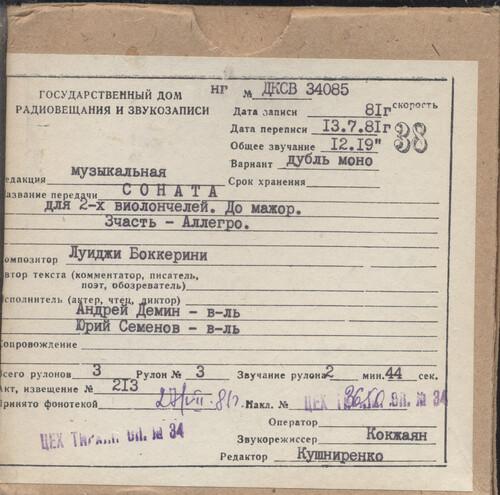 ГОСУДАРСТВЕННЫЙ ДОМ
РАДИОВЕЩАНИЯ И ЗВУКОЗАПИСИ
НГ № ДКСВ 34085
Дата записи 81г скорость
Дата переписи 13.7.81г 38
Общее звучание 12.19"
Вариант дубль моно
едакция музыкальная Срок хранения
азвание передачи СОНАТА
для 2-х виолончелей. До мажор.
3часть - Аллегро.
омпозитор Луиджи Боккерини
втор текста (комментатор, писатель,
поэт, обозреватель)
сполнитель (актер, чтец, диктор)
Андрей Демин - в-ль
Юрий Семенов - в-ль
опровождение
сего рулонов 3 Рулон № 3 Звучание рулона 2 мин. 44 сек.
кт, извещение № 213
ринято фонотекой Накл. № 3650
ЦЕХ ОП. № 34
Оператор
ЦЕХ ТИРАЖ. ОП. № 34
Звукорежиссер Кокжаян
Редактор Кушниренко